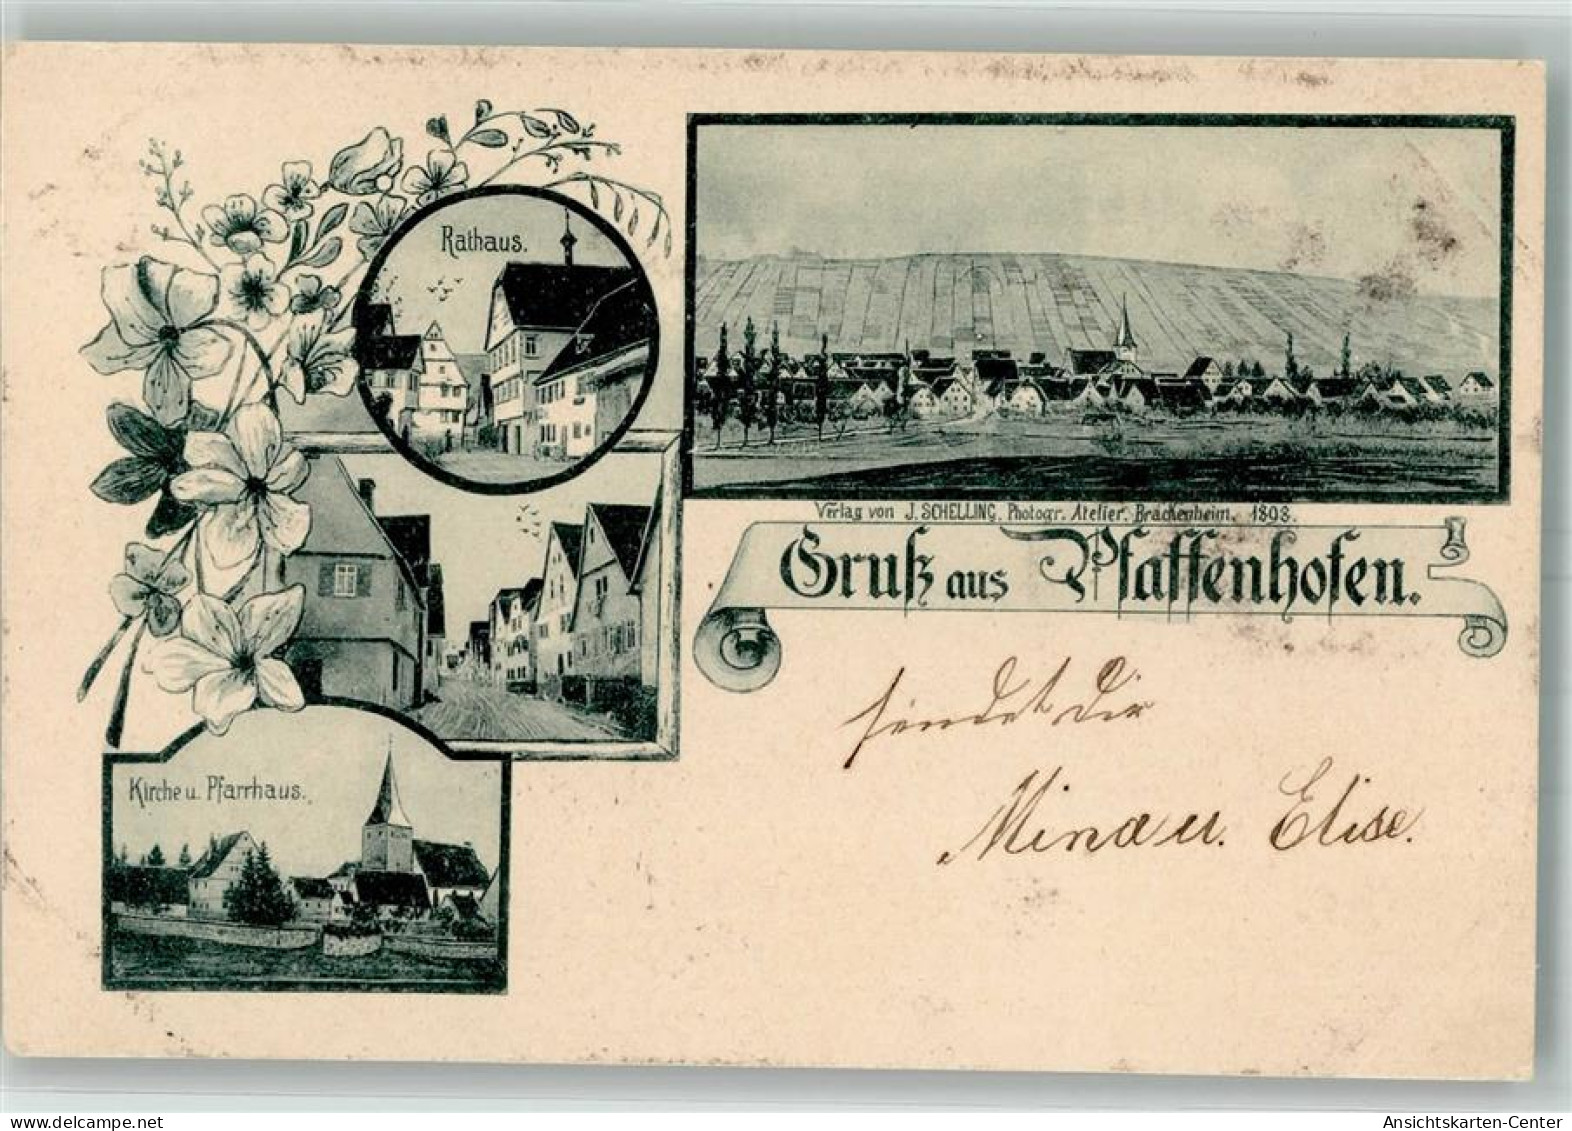 Rathaus.
Kirche u. Pfarrhaus.
Verlag von J. SCHELLING, Photogr. Atelier, Brackenheim, 1898.
Gruß aus Pfaffenhofen.
sendet dir
Elise.
www.delcampe.net
Ansichtskarten-Center